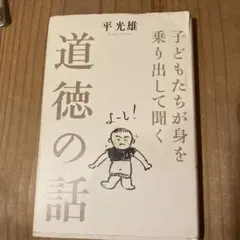 平光雄
子どもたちが身を
乗り出して聞く
道徳の話
よーし!